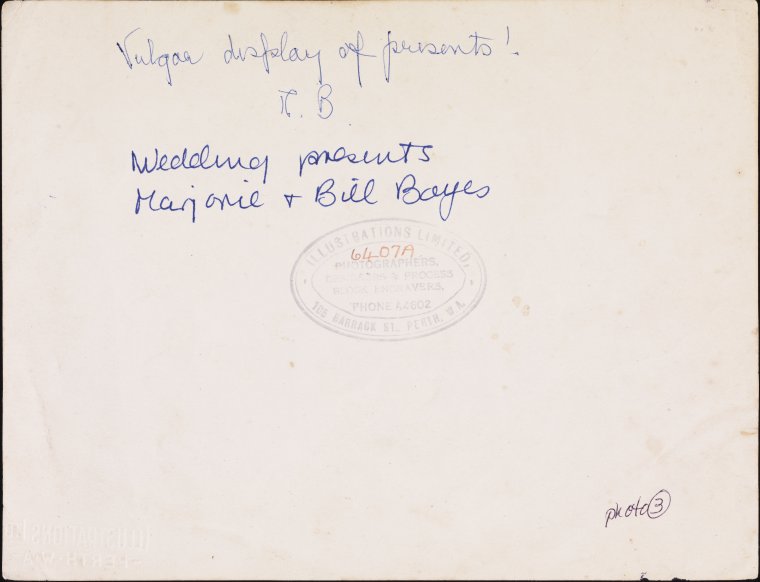 Vulgar display of presents!
M. B
Wedding presents
Marjorie + Bill Bayes
ILLUSTRATIONS LIMITED,
6407A
PHOTOGRAPHERS,
DESIGNERS & PROCESS
BLOCK ENGRAVERS,
'PHONE A4602
105 BARRACK ST. PERTH, W.A.
photo 3
ILLUSTRATIONS
PERTH-W.A-